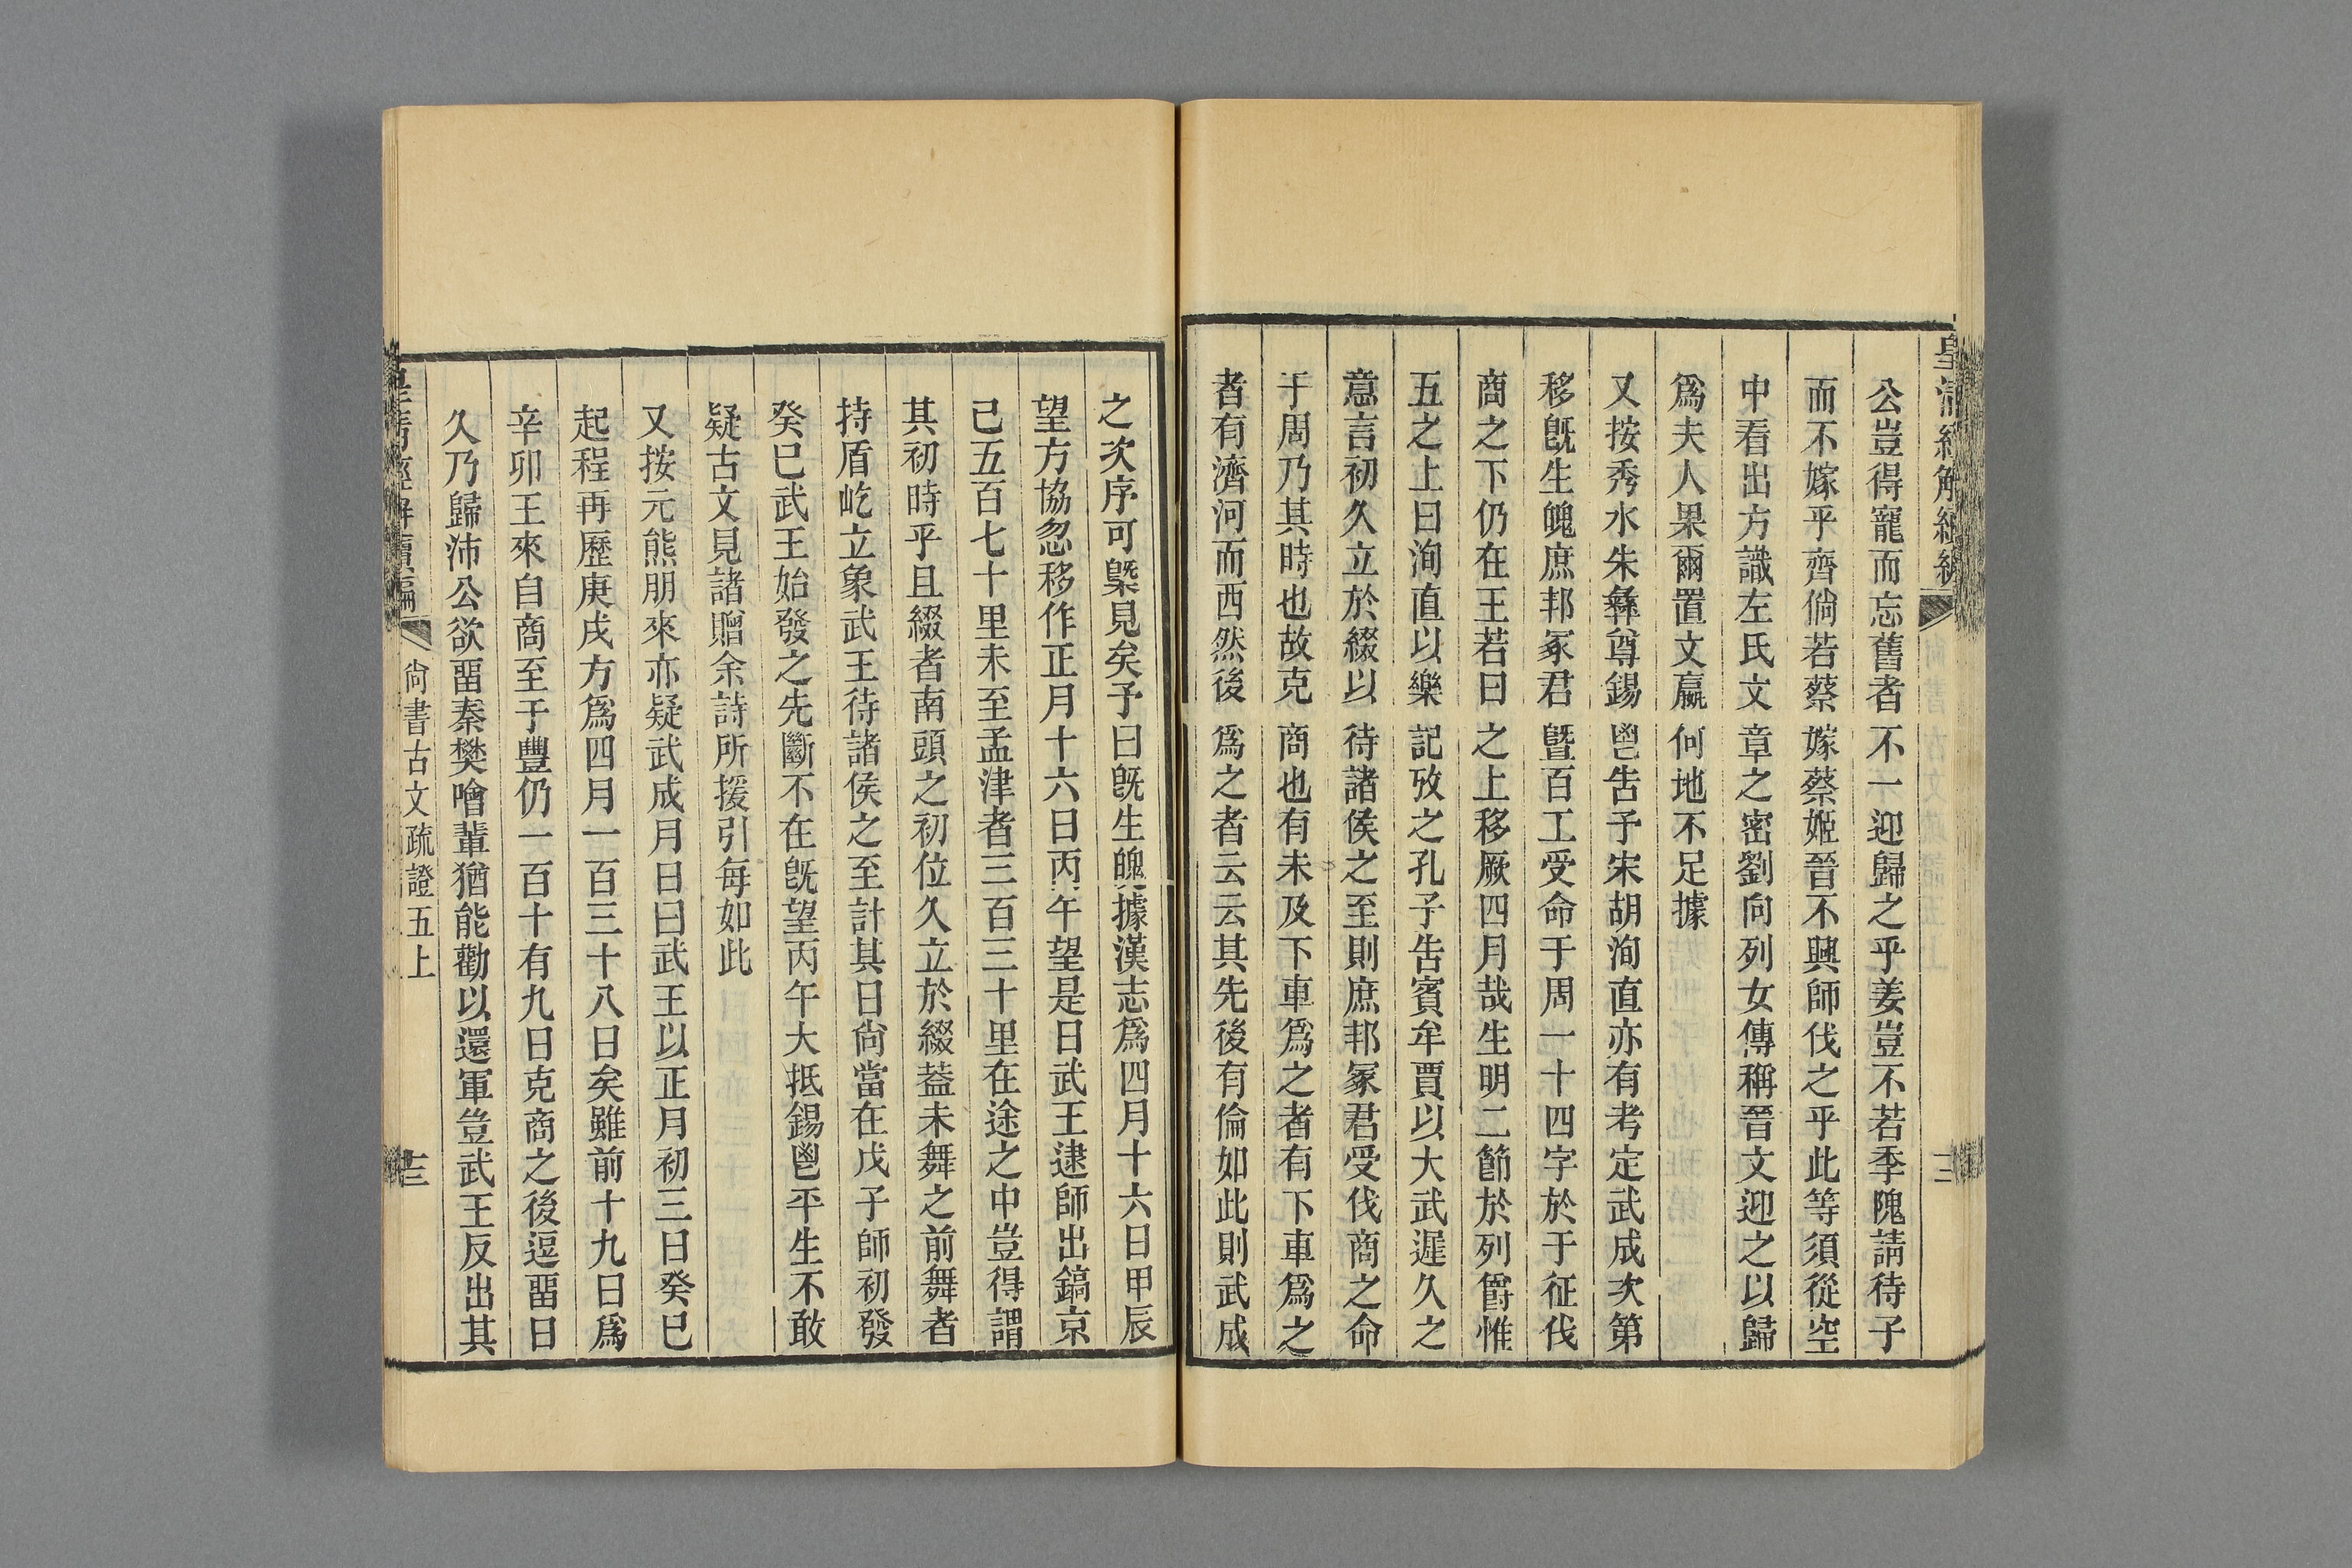 公豈得寵而忘舊者不一迎歸之乎姜豈不若季隗請待子
而不嫁乎齊倘若蔡嫁蔡姬晉不興師伐之乎此等須從空
中看出方識左氏文章之密劉向列女傳稱晉文迎之以歸
爲夫人果爾置文嬴何地不足據
又按秀水朱彝尊錫鬯告予宋胡洵直亦有考定武成次第
移旣生魄庶邦冢君曁百工受命于周一十四字於于征伐
商之下仍在王若曰之上移厥四月哉生明二節於列爵惟
五之上曰洵直以樂記攷之孔子告賓牟賈以大武遲久之
意言初久立於綴以待諸侯之至則庶邦冢君受伐商之命
于周乃其時也故克商也有未及下車爲之者有下車爲之
者有濟河而西然後爲之者云云其先後有倫如此則武成
之次序可槩見矣予曰旣生魄據漢志爲四月十六日甲辰
望方協忽移作正月十六日丙午望是日武王逮師出鎬京
己五百七十里未至孟津者三百三十里在途之中豈得謂
其初時乎且綴者南頭之初位久立於綴葢未舞之前舞者
持盾屹立象武王待諸侯之至計其日尙當在戊子師初發
癸巳武王始發之先斷不在旣望丙午大抵錫鬯平生不敢
疑古文見諸贈余詩所援引每如此
又按元熊朋來亦疑武成月日曰武王以正月初三日癸巳
起程再歷庚戌方爲四月一百三十八日矣雖前十九日爲
辛卯王來自商至于豐仍一百十有九日克商之後逗畱日
久乃歸沛公欲畱秦樊噲輩猶能勸以還軍豈武王反出其
皇清經解續編 尙書古文疏證五上 十三